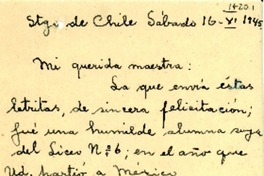 1420.1
Stgo de Chile Sábado 16-XI 1945
Mi querida maestra:
La que envía éstas
letritas, de sincera felicitación;
fué una humilde alumna suya
del Liceo N.º 6; en el año que
Ud. partió a México